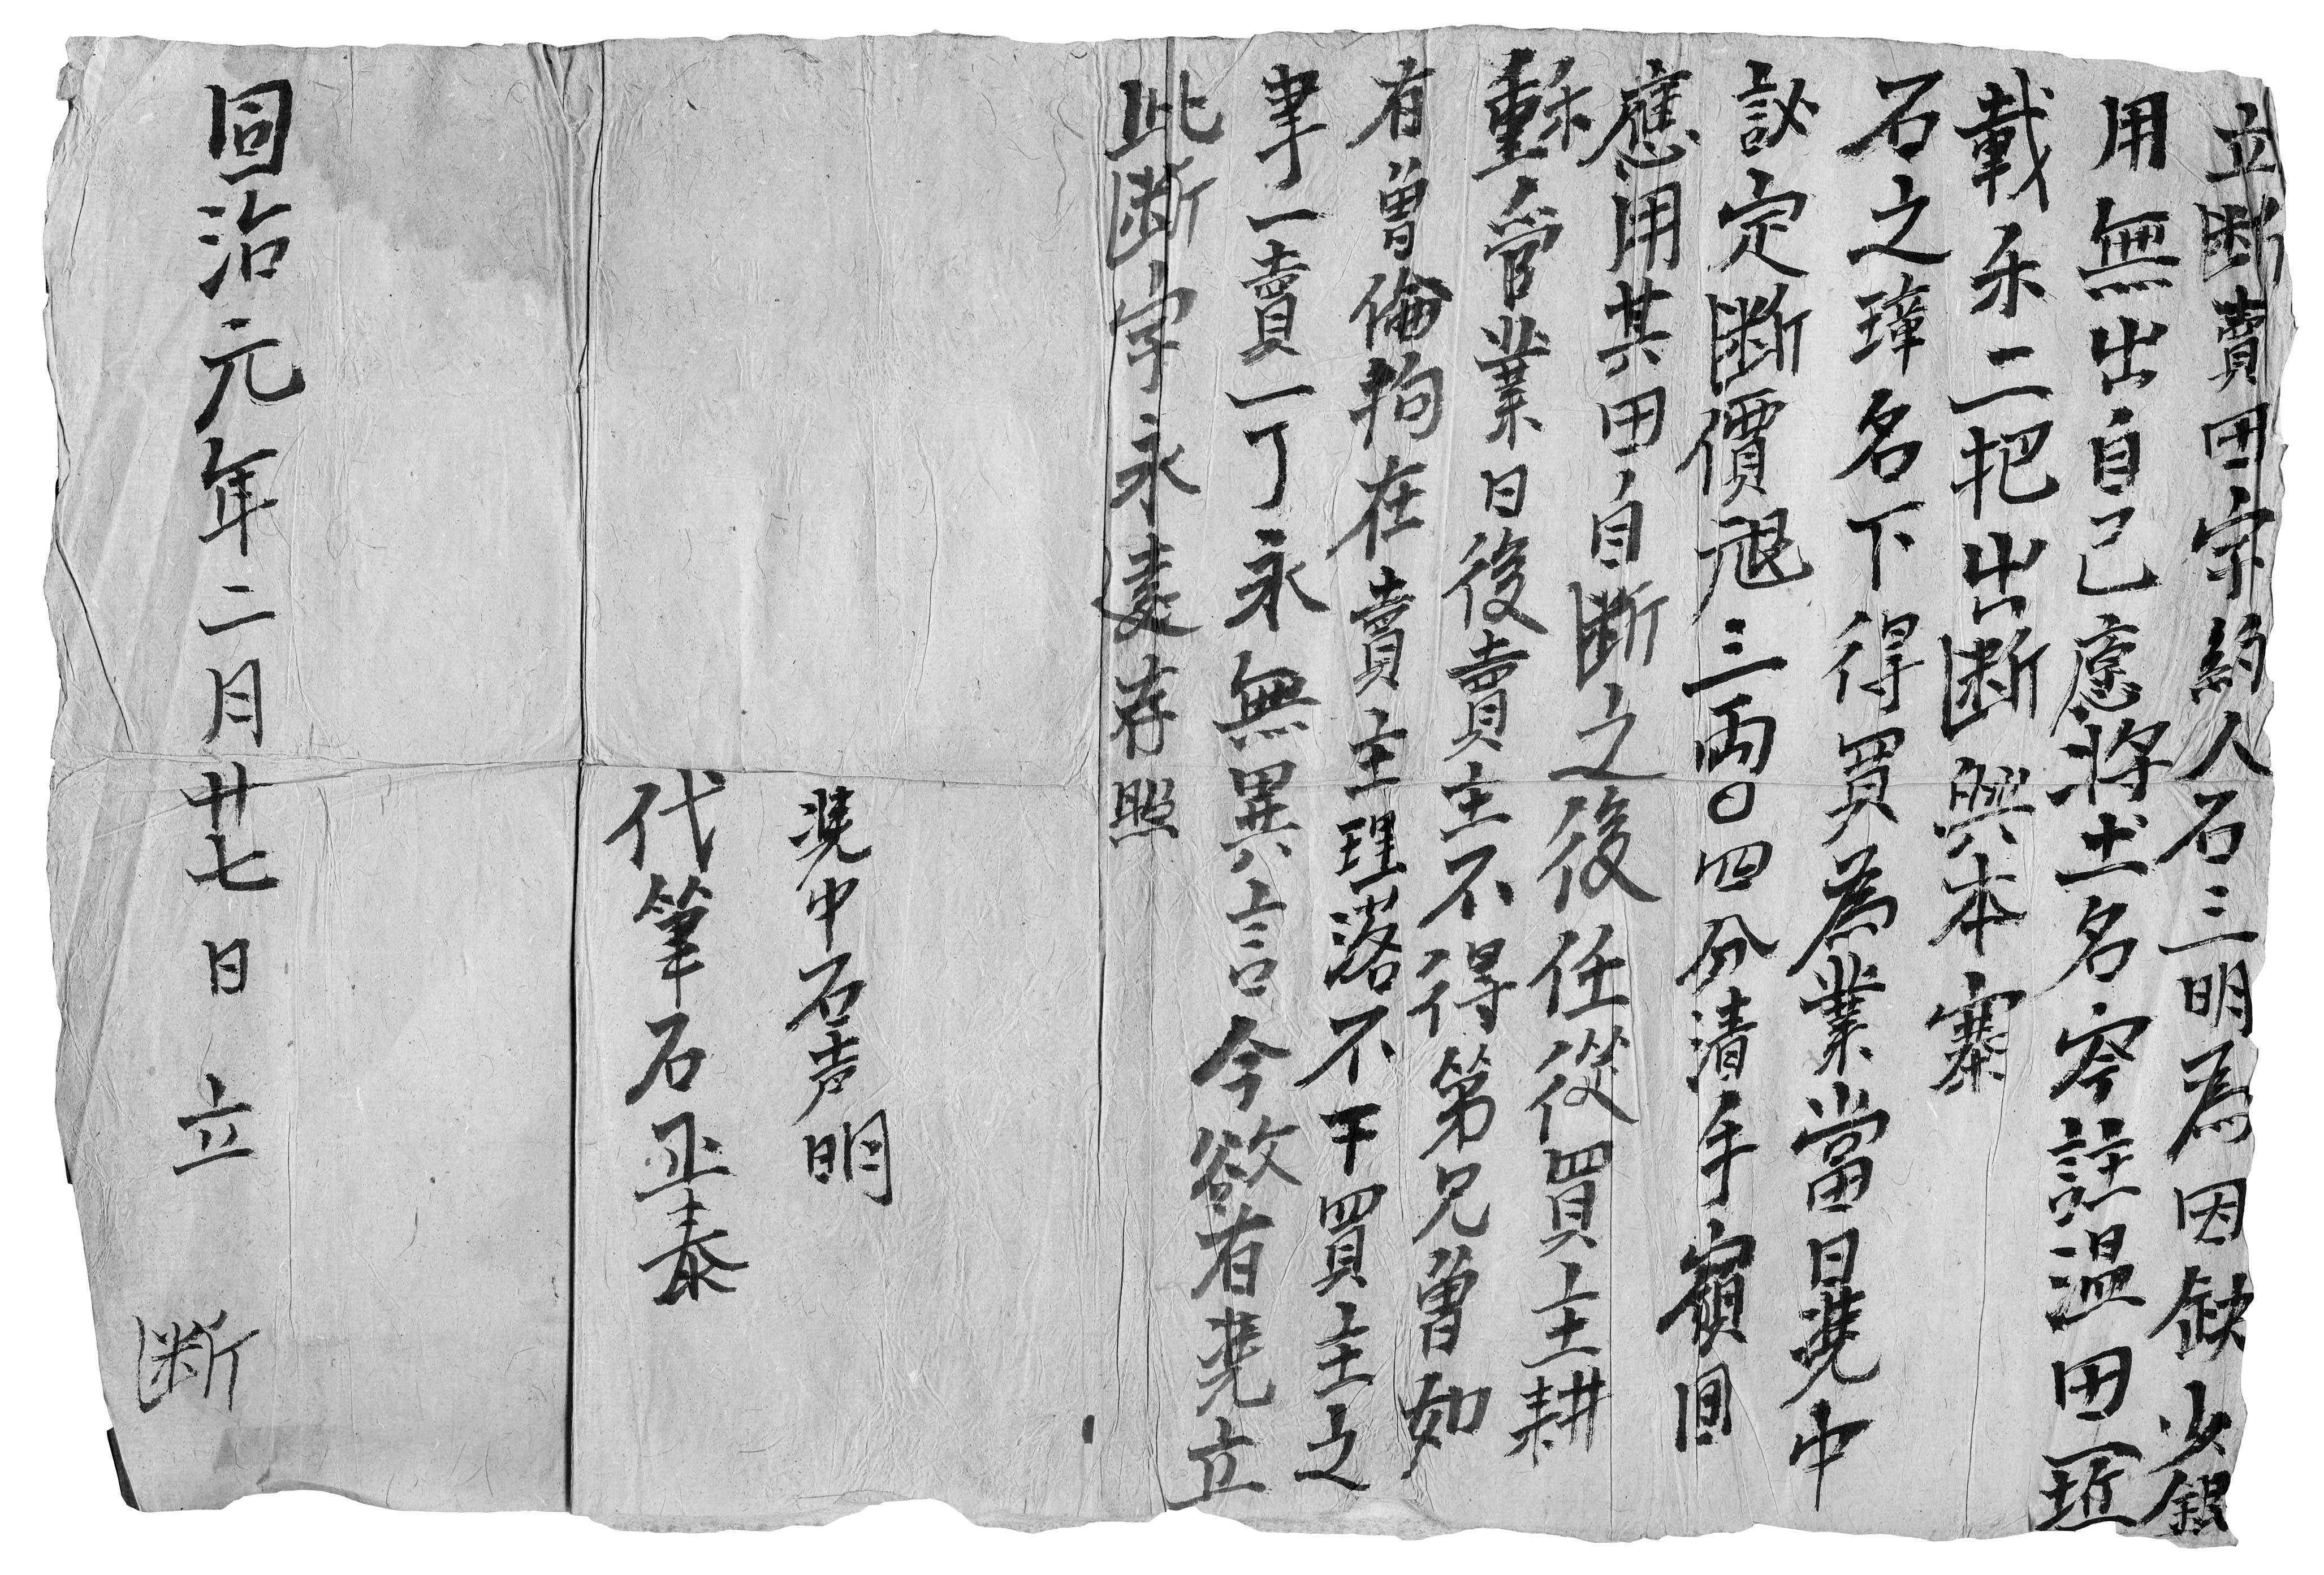 立斷賣田字約人石三明為因缺少銀
用無出自己愿將土名岑註温田一坵
載禾二把出断與本寨
石之璋名下得買為業當日凴中
訟定斷價艮三両〇四分清手領回
應用其田自断之後任從買主耕
種管業日後賣主不得第兄曾如
有曾倫拘在賣主理落不干買主之
事一賣一了永無異言今欲有凴立
此断字永遠存照
凴中石声明
代筆石正泰
同治元年二月廿七日立断